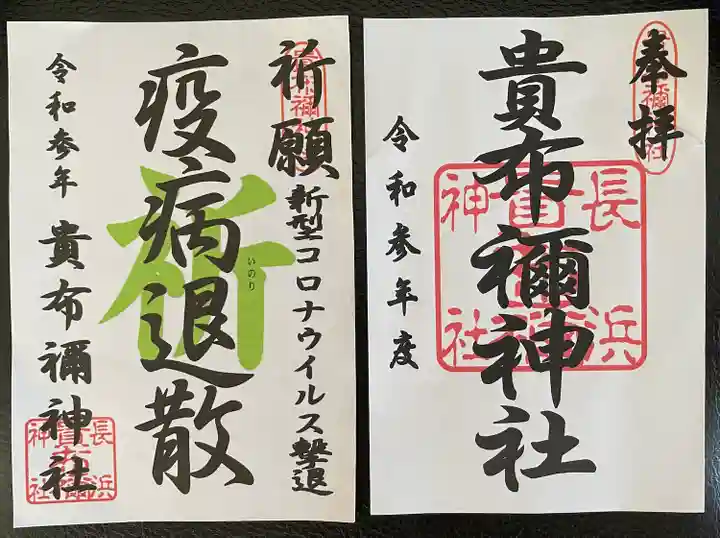 奉拝
貴布禰神社
令和参年度
長浜
貴布禰
神社
祈願
新型コロナウイルス撃退
疫病退散
祈
いのり
令和参年
貴布禰神社
長浜
貴布禰
神社